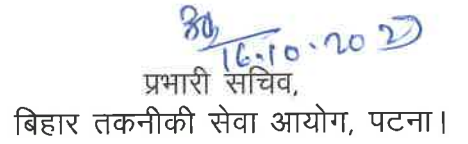 16.10.202
प्रभारी सचिव,
बिहार तकनीकी सेवा आयोग, पटना।